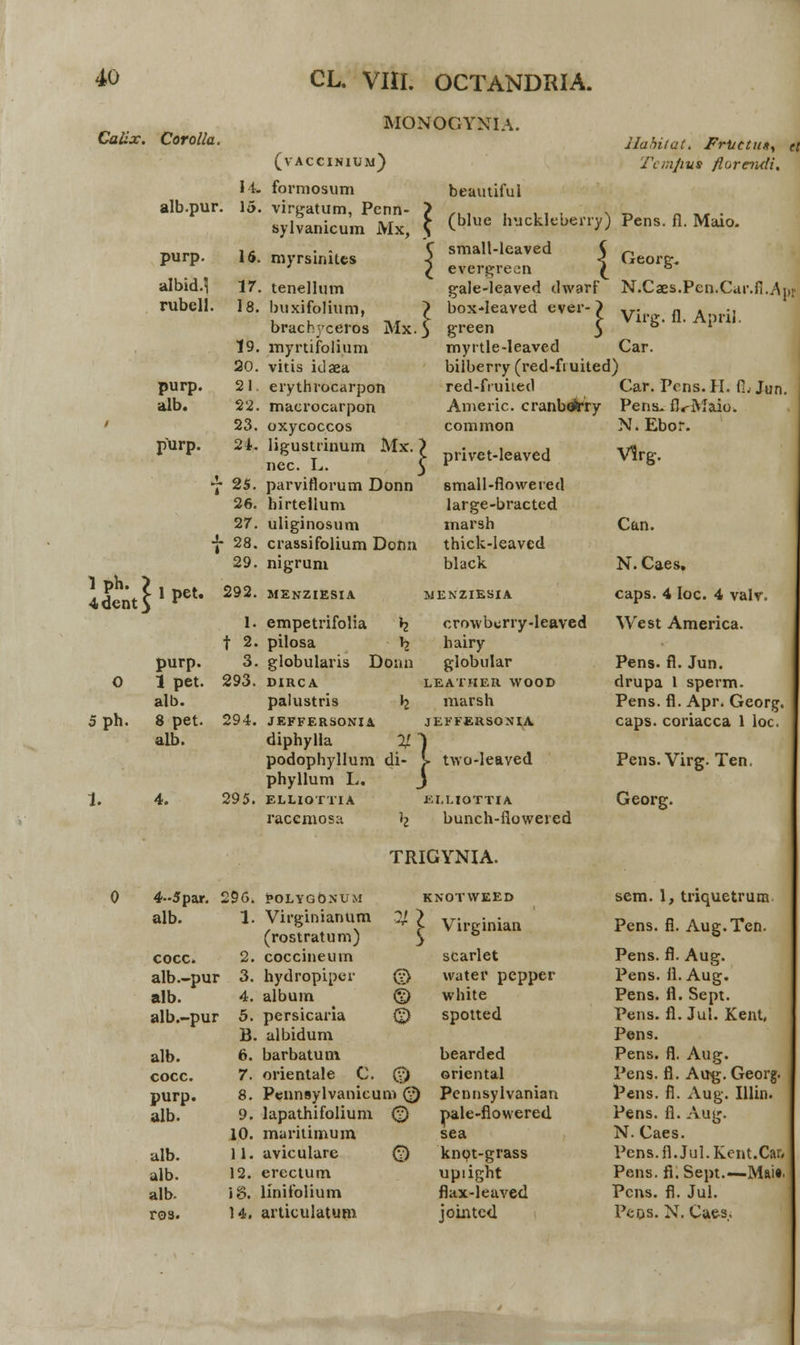 40 CL. VIII. OCTANDRIA.
MONOGYNIA.
Calix. Corolla. Habitat. Fructus, et
(VACCINIUM) Tempus florendi.
14. formosum beautiful
alb.pur. 15. virgatum, Penn-sylvanicum Mx, } (blue huckleberry) Pens. fl. Maio.
purp. 16. myrsinites { small-leaved evergreen { Georg.
albid.} 17. tenellum gale-leaved dwarf N.Cæs.Pen.Car.fl.Apr
rubell. 18. buxifolium, brachyceros Mx. } box-leaved ever-green } Virg. fl. April.
19. myrtifolium myrtle-leaved Car.
20. vitis idæa bilberry (red-fruited)
purp. 21. erythrocarpon red-fruited Car. Pens. H. fl. Jun.
alb. 22. macrocarpon Americ. cranberry Pens. fl. Maio.
23. oxycoccos common N. Ebor.
purp. 24. ligustrinum Mx. nec. L. } privet-leaved Virg.
† 25. parviflorum Donn small-flowered
26. hirtellum large-bracted
27. uliginosum marsh Can.
† 28. crassifolium Donn thick-leaved
29. nigrum black N. Caes.
1 ph. 4dent } 1 pet. 292. MENZIESIA MENZIESIA caps. 4 loc. 4 valv.
1. empetrifolia ♄ crowberry-leaved West America.
† 2. pilosa ♄ hairy
purp. 3. globularis Donn globular Pens. fl. Jun.
0 1 pet. 293. DIRCA LEATHER WOOD drupa 1 sperm.
alb. palustris ♄ marsh Pens. fl. Apr. Georg.
5 ph. 8 pet. 294. JEFFERSONIA JEFFERSONIA caps. coriacca 1 loc.
alb. diphylla ♃ }
podophyllum di- } two-leaved Pens. Virg. Ten.
phyllum L. }
1. 4. 295. ELLIOTTIA ELLIOTTIA Georg.
racemosa ♄ bunch-flowered
TRIGYNIA.
0 4--5par. 296. POLYGONUM KNOTWEED sem. 1, triquetrum
alb. 1. Virginianum (rostratum) ♃ } Virginian Pens. fl. Aug. Ten.
cocc. 2. coccineum scarlet Pens. fl. Aug.
alb.-pur 3. hydropiper ☉ water pepper Pens. fl. Aug.
alb. 4. album ☉ white Pens. fl. Sept.
alb.-pur 5. persicaria ☉ spotted Pens. fl. Jul. Kent,
B. albidum Pens.
alb. 6. barbatum bearded Pens. fl. Aug.
cocc. 7. orientale C. ☉ oriental Pens. fl. Aug. Georg.
purp. 8. Pennsylvanicum ☉ Pennsylvanian Pens. fl. Aug. Illin.
alb. 9. lapathifolium ☉ pale-flowered Pens. fl. Aug.
10. maritimum sea N. Caes.
alb. 11. aviculare ☉ knot-grass Pens.fl.Jul.Kent.Car.
alb. 12. erectum upright Pens. fl. Sept.—Maio.
alb. 13. linifolium flax-leaved Pens. fl. Jul.
ros. 14. articulatum jointed Pens. N. Caes.